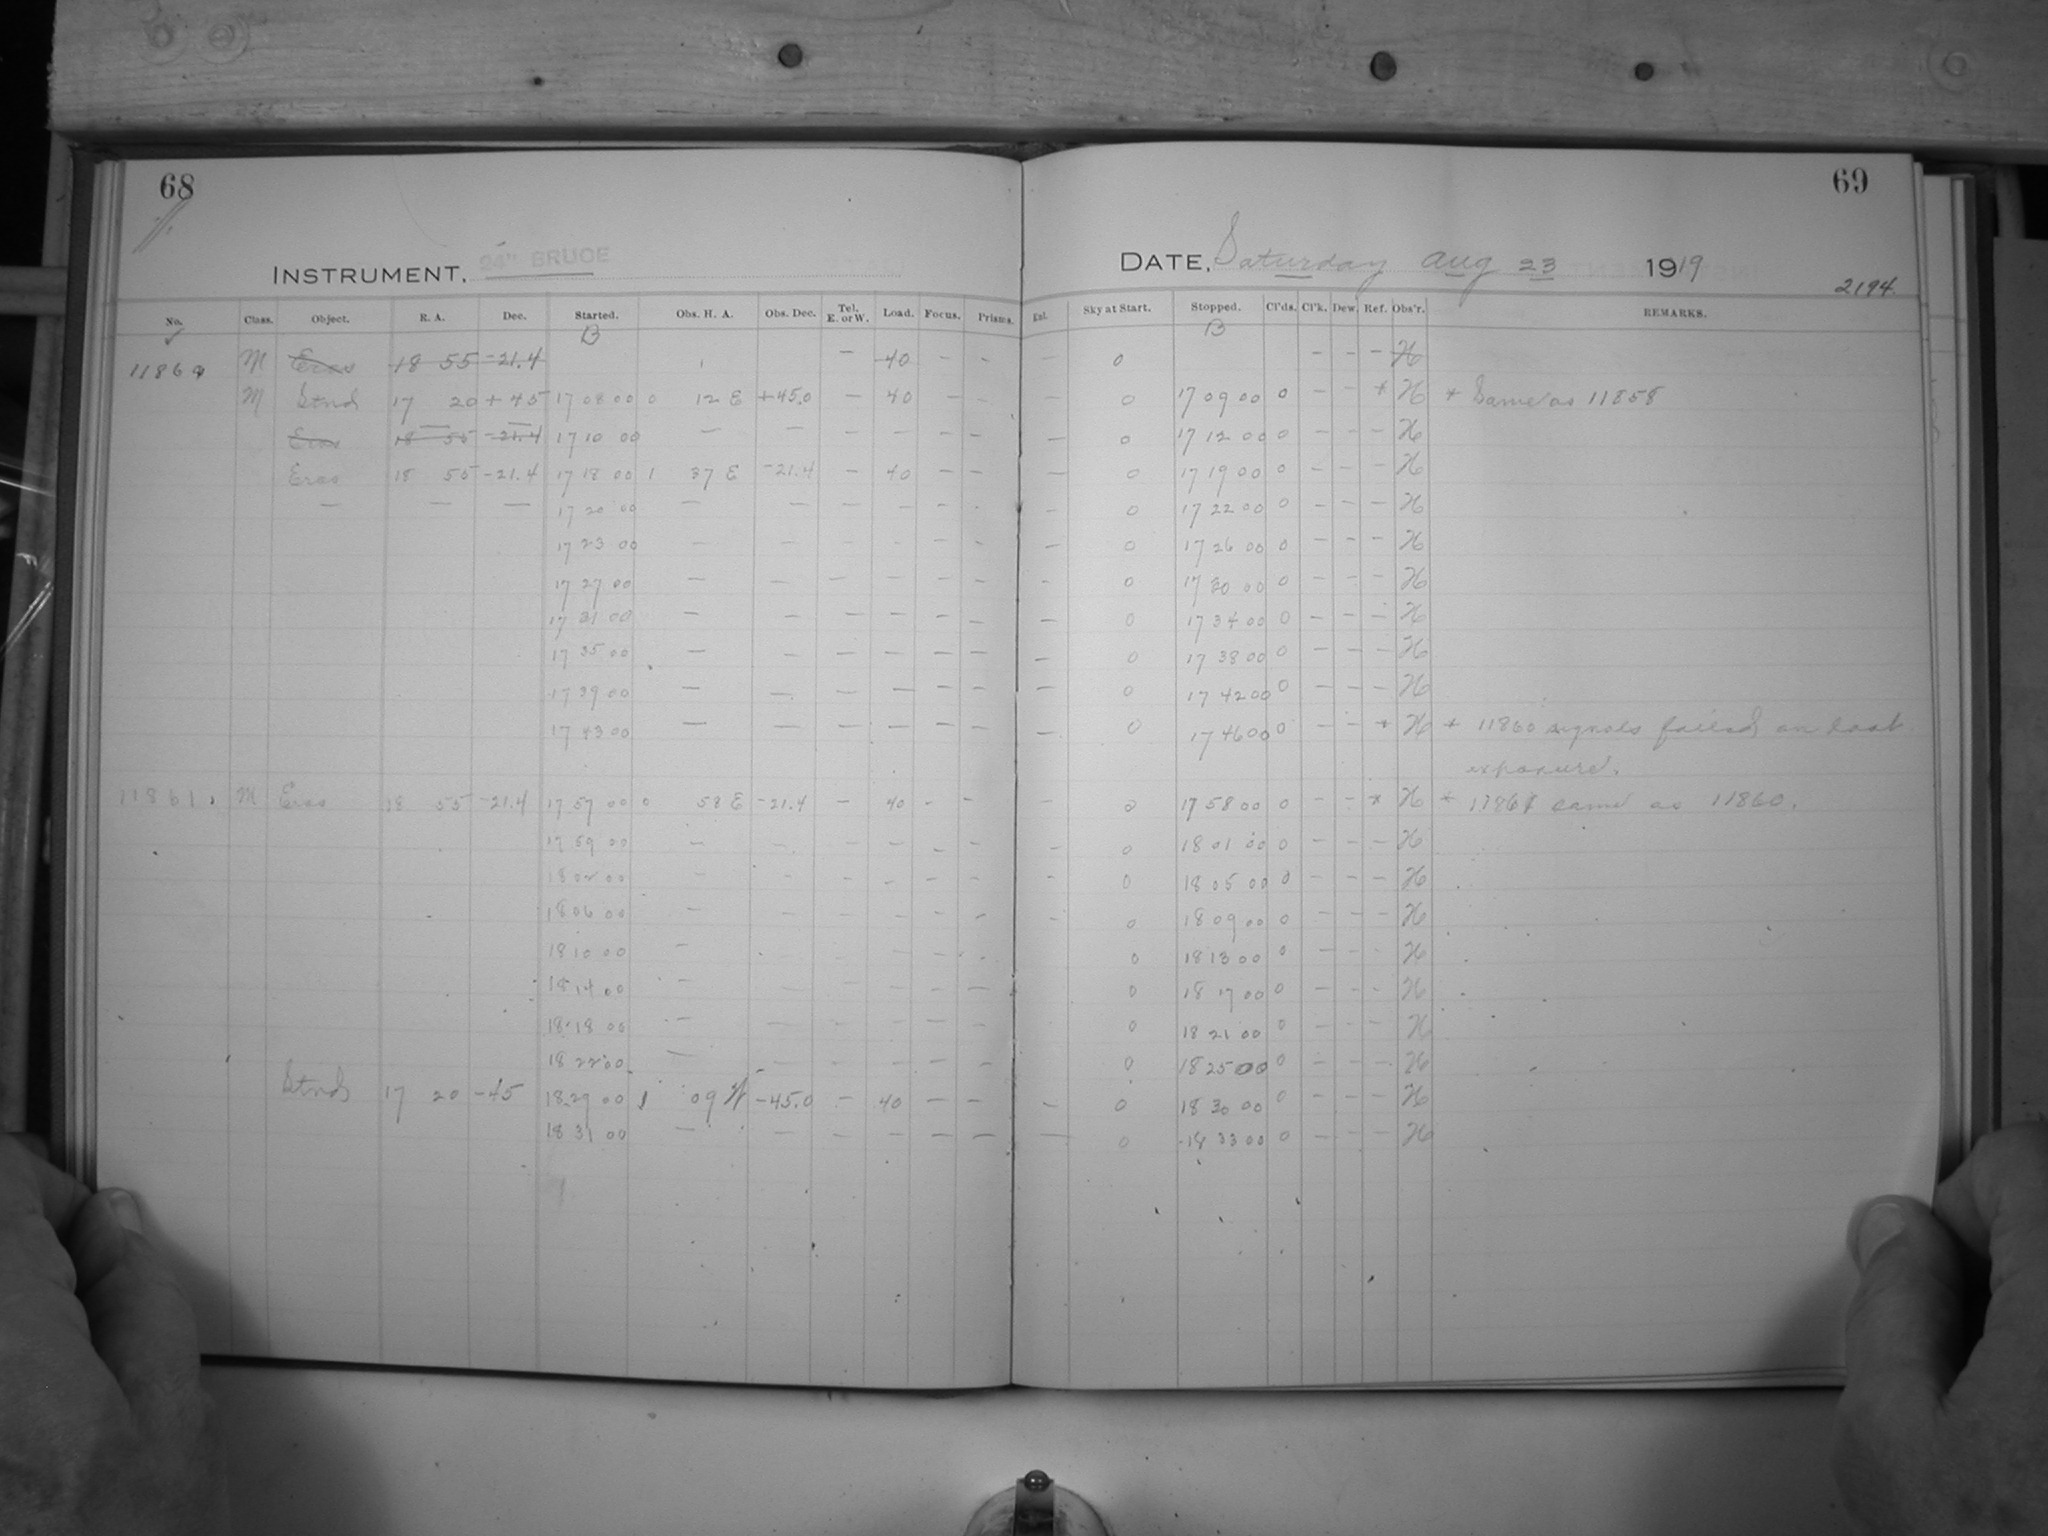 68
69
INSTRUMENT, 24" BRUCE
DATE, Saturday Aug 23 1919
2194
No. Class. Object. R. A. Dec. Started. Obs. H. A. Obs. Dec. Tel. E. or W. Load. Focus. Prisms. Ext. Sky at Start. Stopped. Cl'ds. Cl'k. Dew. Ref. Obs'r. REMARKS.
B B
11860 M Eros 18 55 -21.4 — 40 - - — 0 — — — H
M Stnd 17 20 + 45 17 08 00 0 12 E +45.0 — 40 — - — 0 17 09 00 0 — — * H * Same as 11858
Eros 18 55 -21.4 17 10 00 — — — — — — — 0 17 12 00 0 — — — H
Eros 18 55 -21.4 17 18 00 1 37 E -21.4 — 40 — — — 0 17 19 00 0 — — — H
— — — 17 20 00 — — — — — - — 0 17 22 00 0 — — — H
17 23 00 — — — — — — — 0 17 26 00 0 — — — H
17 27 00 — — — — — — — 0 17 30 00 0 — — — H
17 31 00 — — — — — — — 0 17 34 00 0 — — — H
17 35 00 — — — — — — — 0 17 38 00 0 — — — H
17 39 00 — — — — — — — 0 17 42 00 0 — — — H
17 43 00 — — — — — — — 0 17 46 00 0 — — * H * 11860 signals failed on last
exposure.
11861. M Eros 18 55 -21.4 17 57 00 0 58 E -21.4 — 40 - - — 0 17 58 00 0 — — * H * 11861 same as 11860.
17 59 00 — — — — — — — 0 18 01 00 0 — — — H
18 02 00 — — — — — — — 0 18 05 00 0 — — — H
18 06 00 — — — — — — — 0 18 09 00 0 — — — H
18 10 00 — — — — — - 0 18 13 00 0 — — — H
18 14 00 — — — — — — 0 18 17 00 0 — — - H
18 18 00 — — — — — — 0 18 21 00 0 — — — H
18 22 00 — — — — — — 0 18 25 00 0 — — — H
Stnd 17 20 -45 18 29 00 1 09 W -45.0 — 40 — — — 0 18 30 00 0 — — — H
18 31 00 — — — — — — — 0 18 33 00 0 — — — H